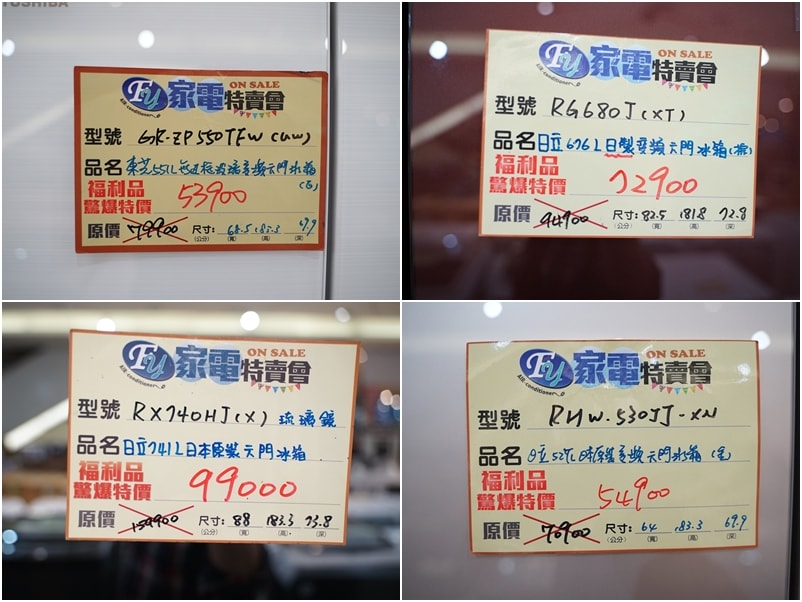 TOSHIBA
FY 家電特賣會 ON SALE
Air-conditioner
型號 GR-ZP550TFW(UW)
品名 東芝551L無邊框玻璃變頻六門冰箱
(白)
福利品
驚爆特價 53900
原價 79900 尺寸: 68.5 183.3 69.9
(公分) (寬) (高) (深)
FY 家電特賣會 ON SALE
Air-conditioner
型號 RG680J(XT)
品名 日立676L日製變頻六門冰箱(棕)
福利品
驚爆特價 72900
原價 94900 尺寸: 82.5 181.8 72.8
(公分) (寬) (高) (深)
FY 家電特賣會 ON SALE
Air-conditioner
型號 RX740HJ(X) 琉璃鏡
品名 日立741L日本原裝六門冰箱
福利品
驚爆特價 99000
原價 159900 尺寸: 88 183.3 73.8
(公分) (寬) (高) (深)
FY 家電特賣會 ON SALE
Air-conditioner
型號 RHW-530JJ-XN
品名 日立527L日本製變頻六門冰箱
福利品
驚爆特價 54900
原價 70900 尺寸: 64 183.3 69.9
(公分) (寬) (高) (深)